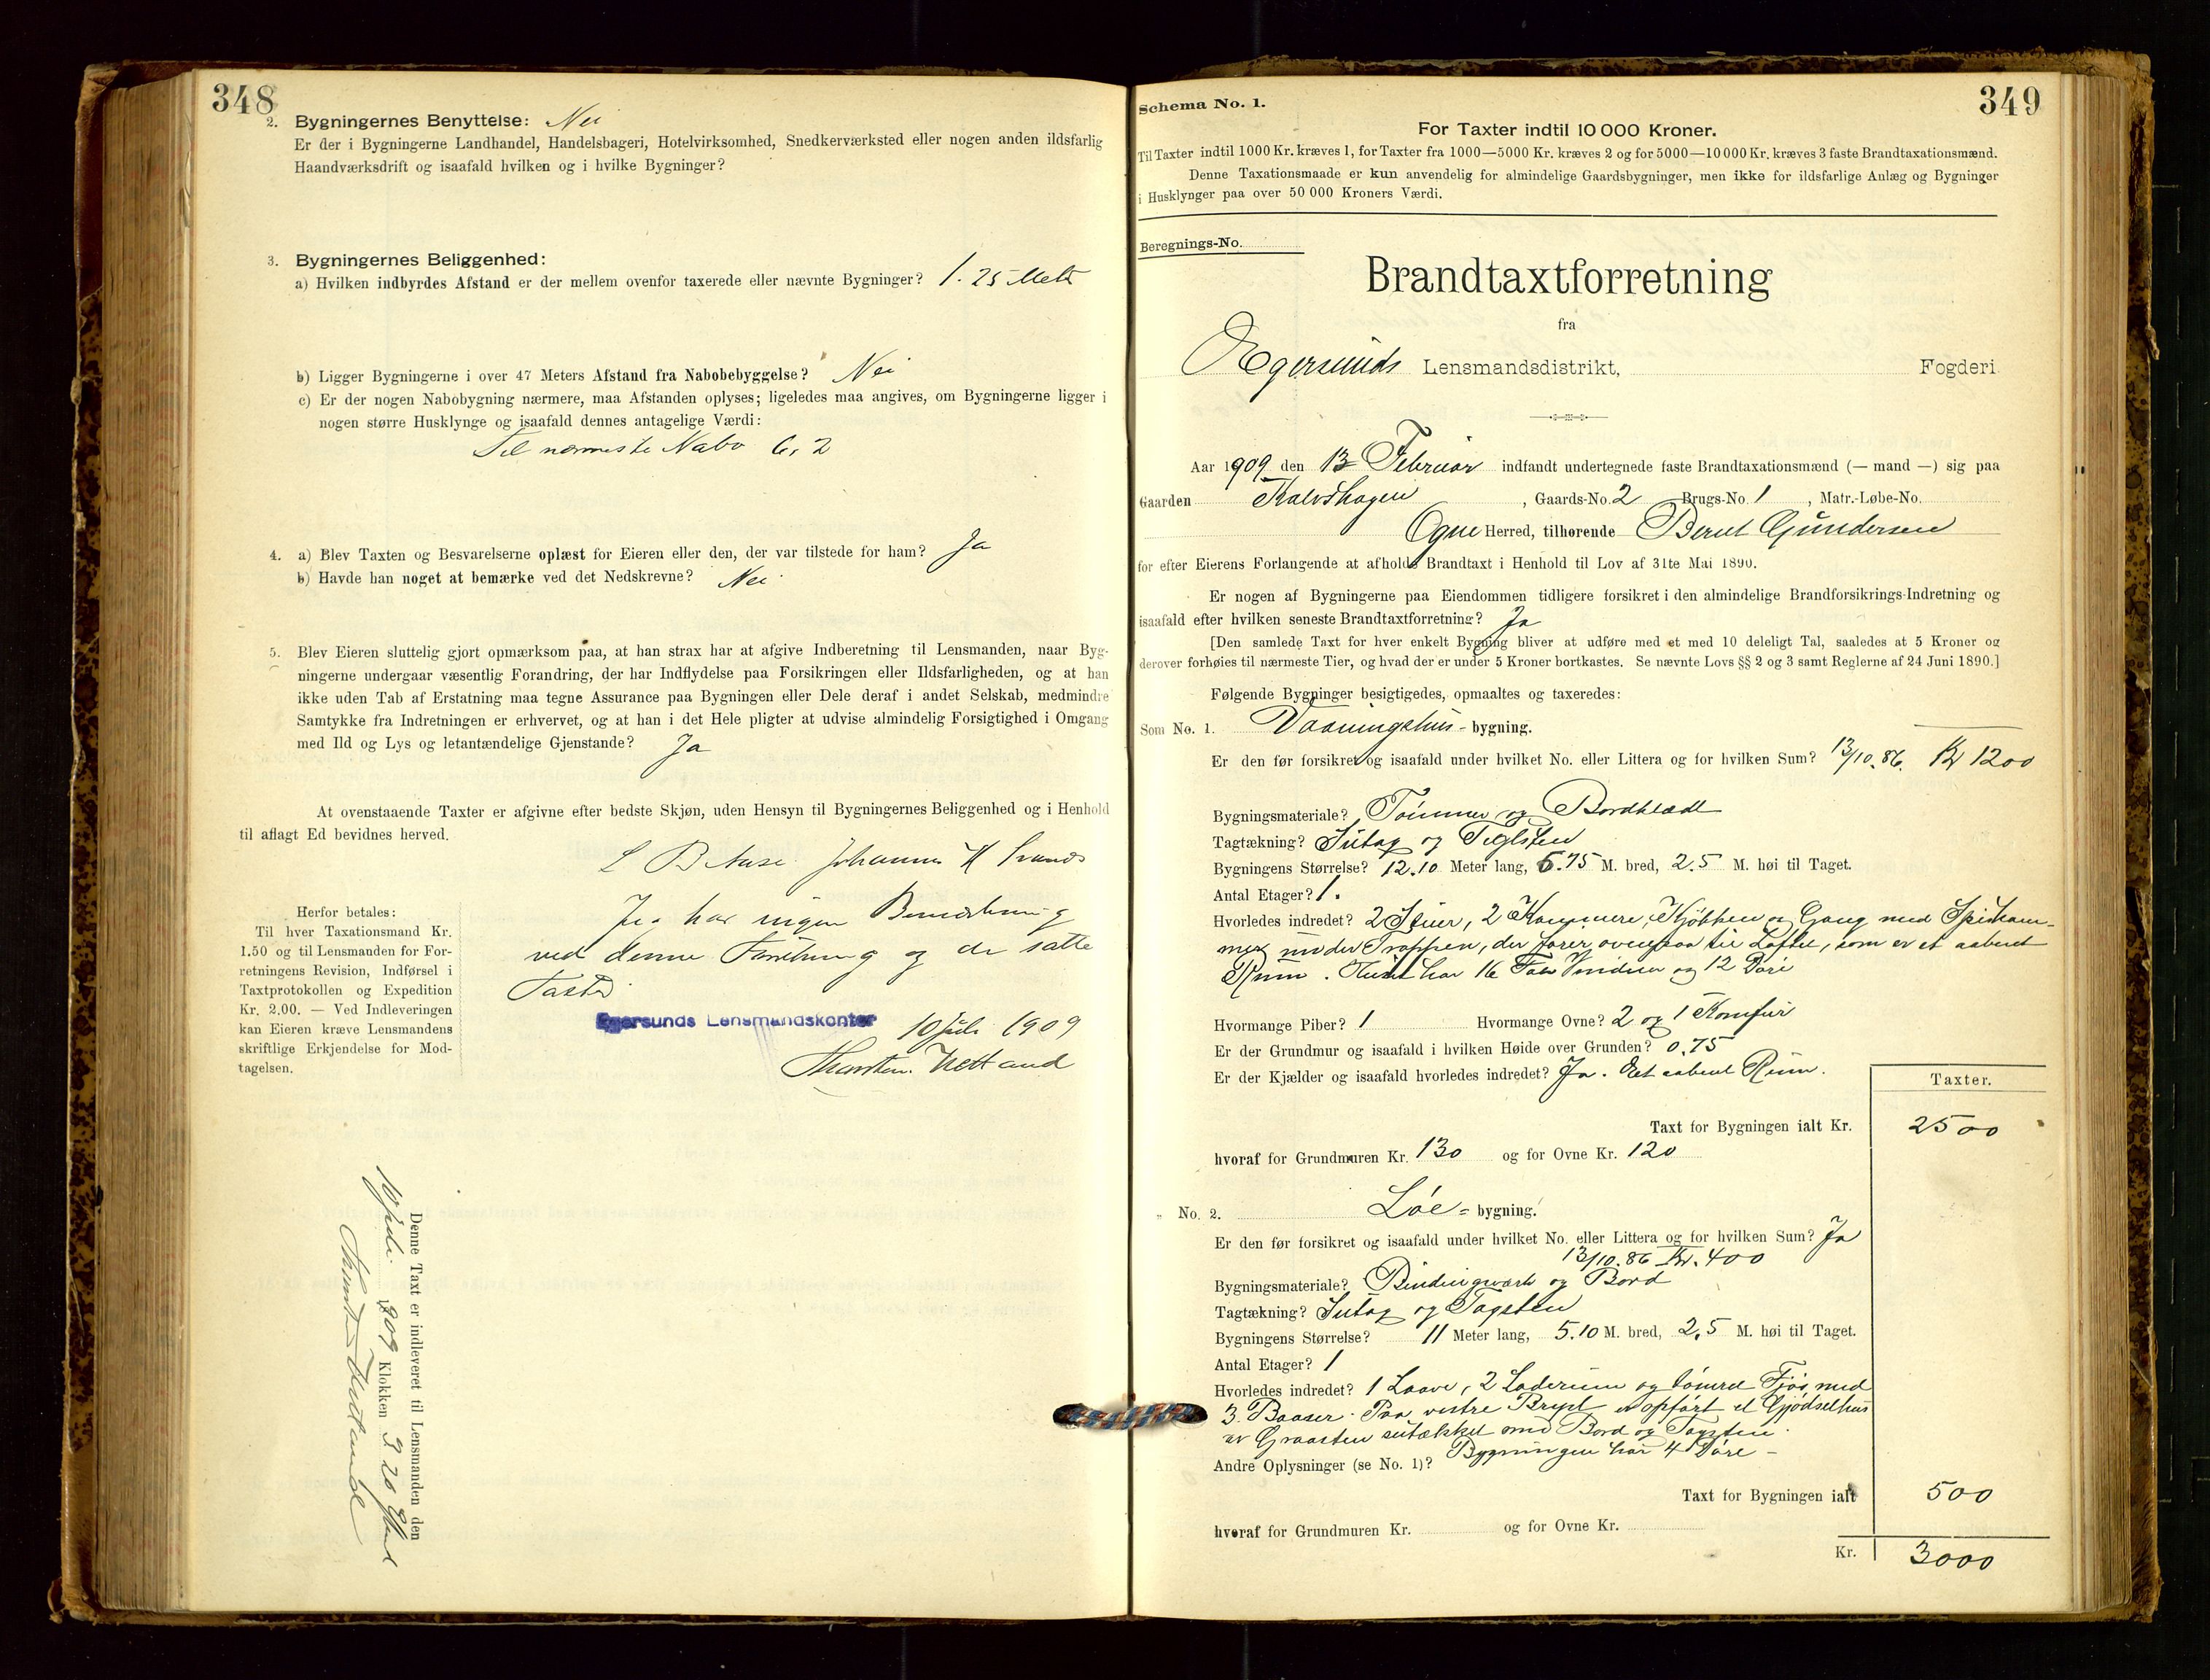 348
2. Bygningernes Benyttelse: Nei
Er der i Bygningerne Landhandel, Handelsbageri, Hotelvirksomhed, Snedkerværksted eller nogen anden ildsfarlig
Haandværksdrift og isaafald hvilken og i hvilke Bygninger?
3. Bygningernes Beliggenhed:
a) Hvilken indbyrdes Afstand er der mellem ovenfor taxerede eller nævnte Bygninger? 1.25 Meter
b) Ligger Bygningerne i over 47 Meters Afstand fra Nabobebyggelse? Nei
c) Er der nogen Nabobygning nærmere, maa Afstanden oplyses; ligeledes maa angives, om Bygningerne ligger i
nogen større Husklynge og isaafald dennes antagelige Værdi:
Til nærmeste Nabo 6,2
4. a) Blev Taxten og Besvarelserne oplæst for Eieren eller den, der var tilstede for ham? Ja
b) Havde han noget at bemærke ved det Nedskrevne? Nei
5. Blev Eieren sluttelig gjort opmærksom paa, at han strax har at afgive Indberetning til Lensmanden, naar Byg-
ningerne undergaar væsentlig Forandring, der har Indflydelse paa Forsikringen eller Ildsfarligheden, og at han
ikke uden Tab af Erstatning maa tegne Assurance paa Bygningen eller Dele deraf i andet Selskab, medmindre
Samtykke fra Indretningen er erhvervet, og at han i det Hele pligter at udvise almindelig Forsigtighed i Omgang
med Ild og Lys og letantændelige Gjenstande? Ja
At ovenstaaende Taxter er afgivne efter bedste Skjøn, uden Hensyn til Bygningernes Beliggenhed og i Henhold
til aflagt Ed bevidnes herved.
L B Aase Johannes H
Jeg har ingen Bemerkning
ved denne Forretning og de satte
Taxter
Egersunds Lensmandskontor 10 juli 1909
Thorsten
Herfor betales:
Til hver Taxationsmand Kr.
1.50 og til Lensmanden for For-
retningens Revision, Indførsel i
Taxtprotokollen og Expedition
Kr. 2.00. — Ved Indleveringen
kan Eieren kræve Lensmandens
skriftlige Erkjendelse for Mod-
tagelsen.
Denne Taxt er indleveret til Lensmanden den
10 juli 1909 Klokken 3.20
Thorsten
Schema No. 1.
349
For Taxter indtil 10 000 Kroner.
Til Taxter indtil 1000 Kr. kræves 1, for Taxter fra 1000—5000 Kr. kræves 2 og for 5000—10 000 Kr. kræves 3 faste Brandtaxationsmænd.
Denne Taxationsmaade er kun anvendelig for almindelige Gaardsbygninger, men ikke for ildsfarlige Anlæg og Bygninger
i Husklynger paa over 50 000 Kroners Værdi.
Beregnings-No.
Brandtaxtforretning
fra
Egersunds Lensmandsdistrikt, Fogderi
Aar 1909 den 13 Februar indfandt undertegnede faste Brandtaxationsmænd (— mand —) sig paa
Gaarden Kalvshagen, Gaards-No. 2 Brugs-No. 1, Matr.-Løbe-No.
Ogne Herred, tilhørende Bernt Gundersen
for efter Eierens Forlangende at afholde Brandtaxt i Henhold til Lov af 31te Mai 1890.
Er nogen af Bygningerne paa Eiendommen tidligere forsikret i den almindelige Brandforsikrings-Indretning og
isaafald efter hvilken seneste Brandtaxtforretning? Ja
[Den samlede Taxt for hver enkelt Bygning bliver at udføre med et med 10 deleligt Tal, saaledes at 5 Kroner og
derover forhøies til nærmeste Tier, og hvad der er under 5 Kroner bortkastes. Se nævnte Lovs §§ 2 og 3 samt Reglerne af 24 Juni 1890.]
Følgende Bygninger besigtigedes, opmaaltes og taxeredes:
Som No. 1. Vaaningshus - bygning.
Er den før forsikret og isaafald under hvilket No. eller Littera og for hvilken Sum? 13/10.86. Kr 1200
Bygningsmateriale? Tømmer og Bordklædt
Tagtækning? Sutag og Teglsten
Bygningens Størrelse? 12.10 Meter lang, 6.75 M. bred, 2.5 M. høi til Taget.
Antal Etager? 1.
Hvorledes indredet? 2 Stuer, 2 Kammere, Kjøkken og Gang med Spiskam-
mer under Trappen, der fører ovenpaa til Loftet, som er et aabent
Rum. Huset har 16 Fag Vinduer og 12 Døre
Hvormange Piber? 1 Hvormange Ovne? 2 og 1 Komfur
Er der Grundmur og isaafald i hvilken Høide over Grunden? 0.75
Er der Kjælder og isaafald hvorledes indredet? Ja. Et aabent Rum.
Taxter.
Taxt for Bygningen ialt Kr. 2500
hvoraf for Grundmuren Kr. 130 og for Ovne Kr. 120
" No. 2. Løe - bygning.
Er den før forsikret og isaafald under hvilket No. eller Littera og for hvilken Sum? Ja
13/10.86 Kr. 400
Bygningsmateriale? Bindingsværk og Bord
Tagtækning? Sutag og Tagsten
Bygningens Størrelse? 11 Meter lang, 5.10 M. bred, 2,5 M. høi til Taget.
Antal Etager? 1
Hvorledes indredet? 1 Laave, 2 Laderum og tømret Fjøs med
3 Baaser. Paa vestre Bryst er opført et Gjødselhus
av Graasten sutækket med Bord og Tagsten.
Andre Oplysninger (se No. 1)? Bygningen har 4 Døre -
Taxt for Bygningen ialt 500
hvoraf for Grundmuren Kr. og for Ovne Kr.
Kr. 3000